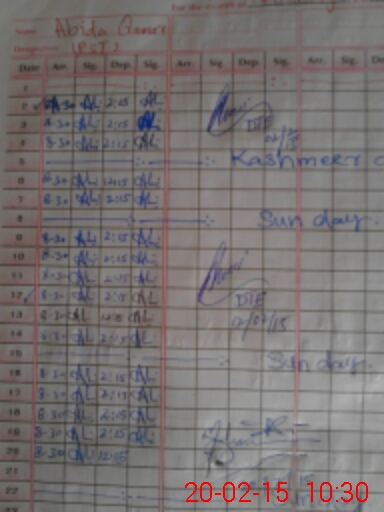 For the month of
Name Abida
(PST)
Date Arr. Sig. Dep. Sig. Arr. Sig. Dep. Sig.
1
2 8-30 AL 2:15 AL
3 8-30 AL 2:15 AL DTE
4 8-30 AL 2:15 AL
5 Kashmeer
6 8-30 AL 12:15 AL
7 8-30 AL 2:15 AL
8 Sunday
9 8-30 AL 2:15 AL
10 8-30 AL 2:15 AL
11 8-30 AL 2:15 AL
12 8-30 AL 2:15 AL DTE
13 8-30 AL 12:15 AL 12/02/15
14 8-30 AL 2:15 AL
15 Sunday
16 8-30 AL 2:15 AL
17 8-30 AL 2:15 AL
18 8-30 AL 2:15 AL
19 8-30 AL 2:15 AL
20 8-30 AL 12:15
21
22
20-02-15 10:30